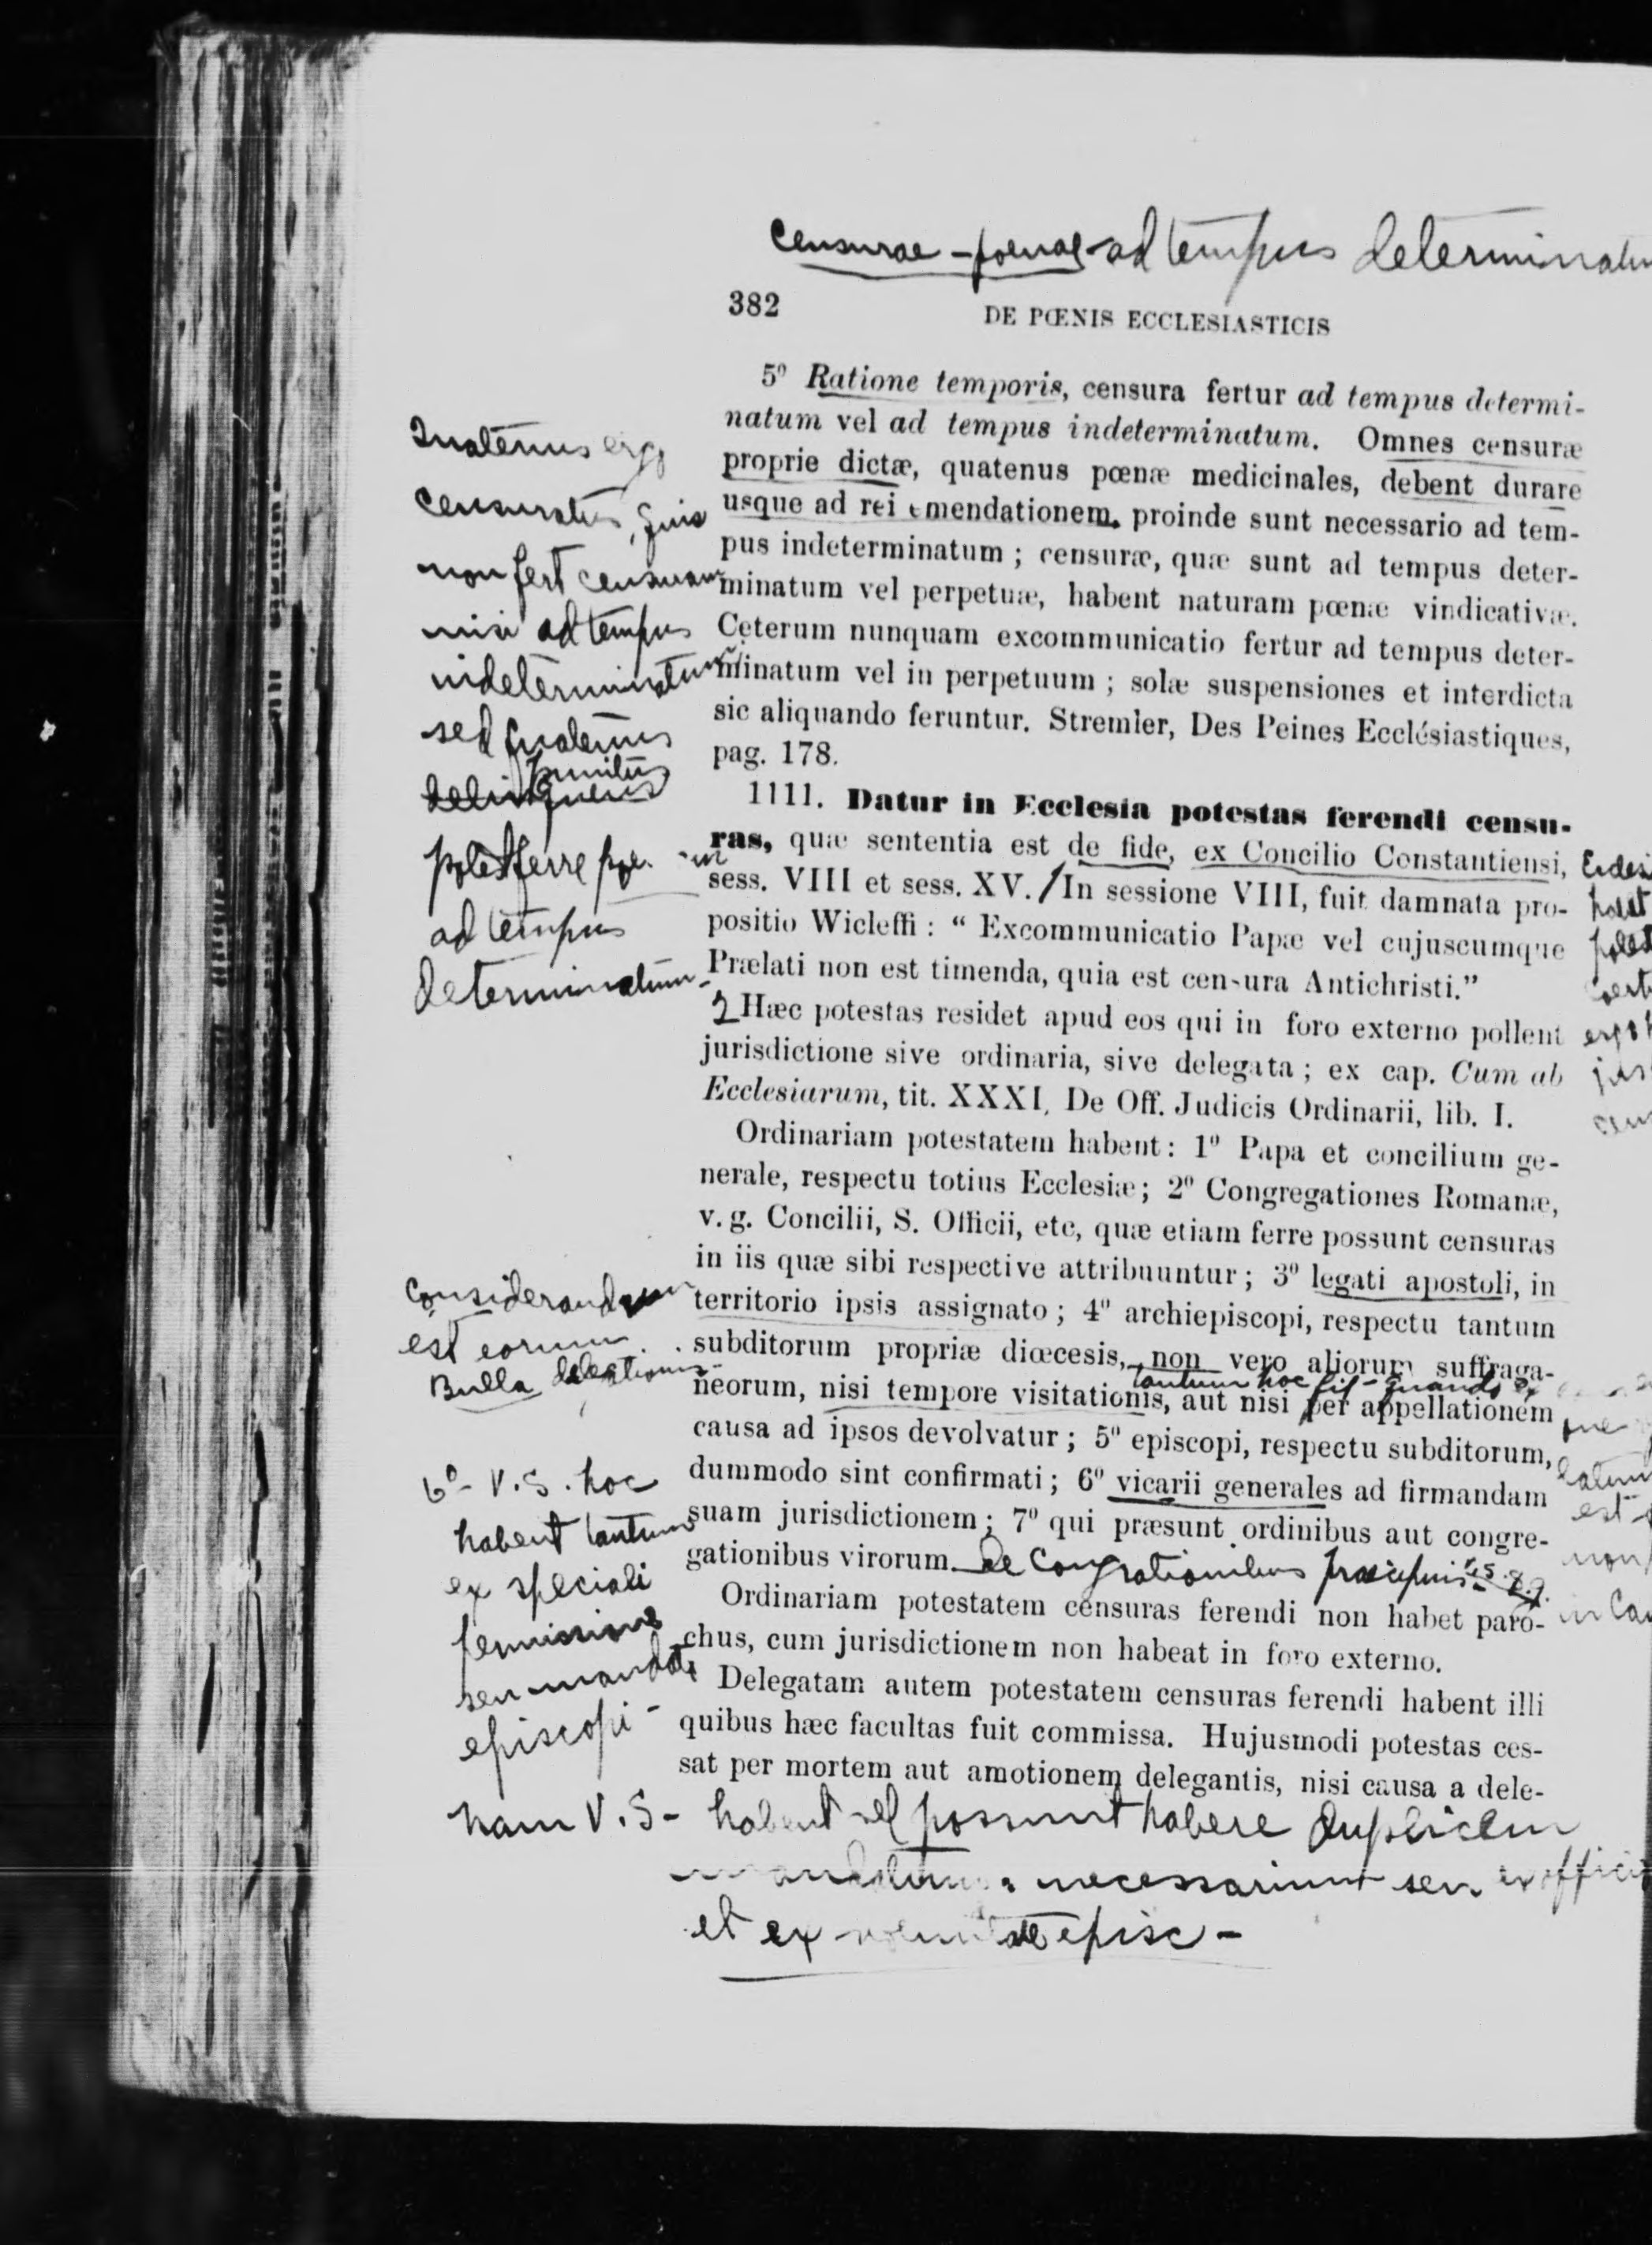 Censurae - poenae - ad tempus determinatu
382
DE PŒNIS ECCLESIASTICIS
5º Ratione temporis, censura fertur ad tempus determi-
natum vel ad tempus indeterminatum. Omnes censuræ
proprie dictæ, quatenus pœnæ medicinales, debent durare
usque ad rei emendationem, proinde sunt necessario ad tem-
pus indeterminatum ; censuræ, quæ sunt ad tempus deter-
minatum vel perpetuæ, habent naturam pœnæ vindicativæ.
Ceterum nunquam excommunicatio fertur ad tempus deter-
minatum vel in perpetuum ; solæ suspensiones et interdicta
sic aliquando feruntur. Stremler, Des Peines Ecclésiastiques,
pag. 178.
Quatenus ergo
censuratus, quis
non fert censuram
nisi ad tempus
indeterminatum
sed quatenus
punitus
delinquens
potest ferre poe.
ad tempus
determinatum
1111. Datur in Ecclesia potestas ferendi censu-
ras, quæ sententia est de fide, ex Concilio Constantiensi,
sess. VIII et sess. XV. / In sessione VIII, fuit damnata pro-
positio Wicleffi : “ Excommunicatio Papæ vel cujuscumque
Prælati non est timenda, quia est censura Antichristi.”
2 Hæc potestas residet apud eos qui in foro externo pollent
jurisdictione sive ordinaria, sive delegata ; ex cap. Cum ab
Ecclesiarum, tit. XXXI, De Off. Judicis Ordinarii, lib. I.
Ordinariam potestatem habent : 1º Papa et concilium ge-
nerale, respectu totius Ecclesiæ ; 2º Congregationes Romanæ,
v. g. Concilii, S. Officii, etc, quæ etiam ferre possunt censuras
in iis quæ sibi respective attribuuntur ; 3º legati apostoli, in
territorio ipsis assignato ; 4º archiepiscopi, respectu tantum
subditorum propriæ diœcesis, non vero aliorum suffraga-
tantum hoc fit - quando ex
neorum, nisi tempore visitationis, aut nisi per appellationem
causa ad ipsos devolvatur ; 5º episcopi, respectu subditorum,
dummodo sint confirmati ; 6º vicarii generales ad firmandam
suam jurisdictionem ; 7º qui præsunt ordinibus aut congre-
gationibus virorum. de Congrationibus praecipuis
Considerandum
est eorum
Bulla delegationis
6º - V. S. hoc
habent tantum
ex speciali
permissione
seu mandato
episcopi -
Ordinariam potestatem censuras ferendi non habet paro-
chus, cum jurisdictionem non habeat in foro externo.
Delegatam autem potestatem censuras ferendi habent illi
quibus hæc facultas fuit commissa. Hujusmodi potestas ces-
sat per mortem aut amotionem delegantis, nisi causa a dele-
nam V. S - habent vel possunt habere duplicem
mandatum : necessarium seu ex offici
et ex voluntate episc -
potest
ergo
jus
est
non